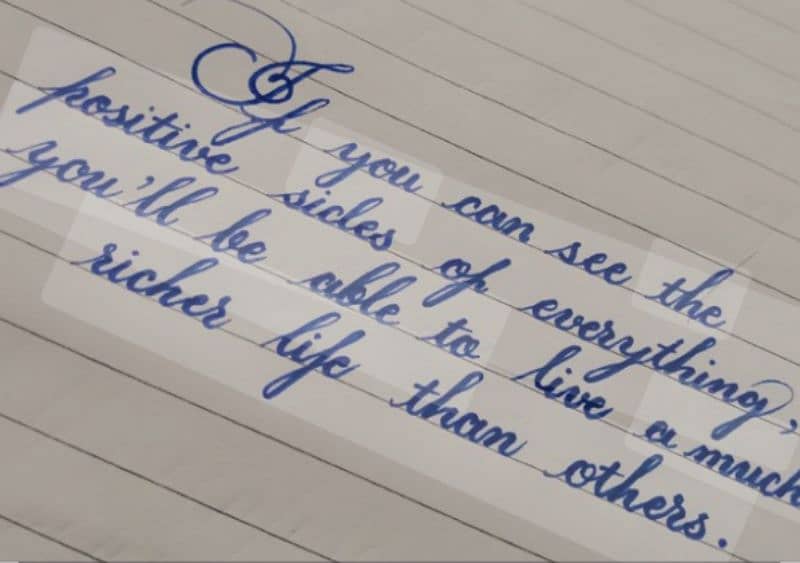 If you can see the
positive sides of everything,
you'll be able to live a much
richer life than others.